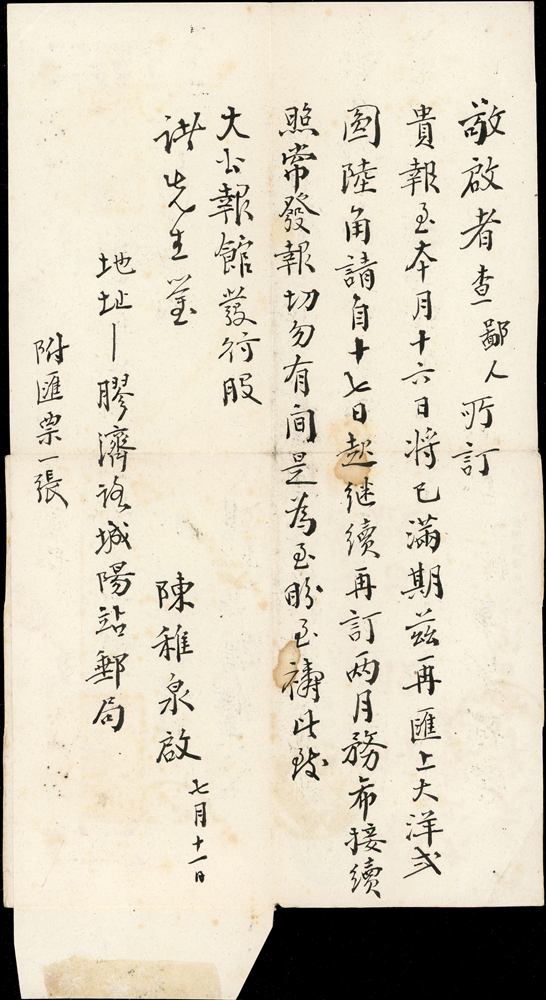 敬啟者查鄙人所訂
貴報至本月十六日將已滿期茲再匯上大洋弍
圓陸角請自十七日起继續再訂两月務希接續
照常發報切勿有间是為至盼至禱此致
大公報館發行股
諸先生鉴
陳稚泉啟 七月十一日
地址－膠濟路城陽站郵局
附匯票一張